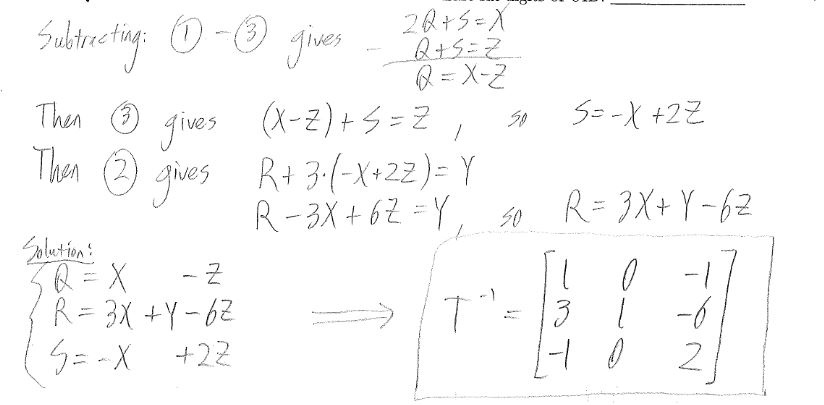 Subtracting: ① - ③ gives
2Q+S=X
- Q+S=Z
Q=X-Z
Then ③ gives (X-Z)+S=Z, so S=-X+2Z
Then ② gives R+3·(-X+2Z)=Y
R-3X+6Z=Y, so R=3X+Y-6Z
Solution:
{ Q=X -Z
R=3X+Y-6Z
S=-X +2Z
⟹ T⁻¹ = [1 0 -1
3 1 -6
-1 0 2]